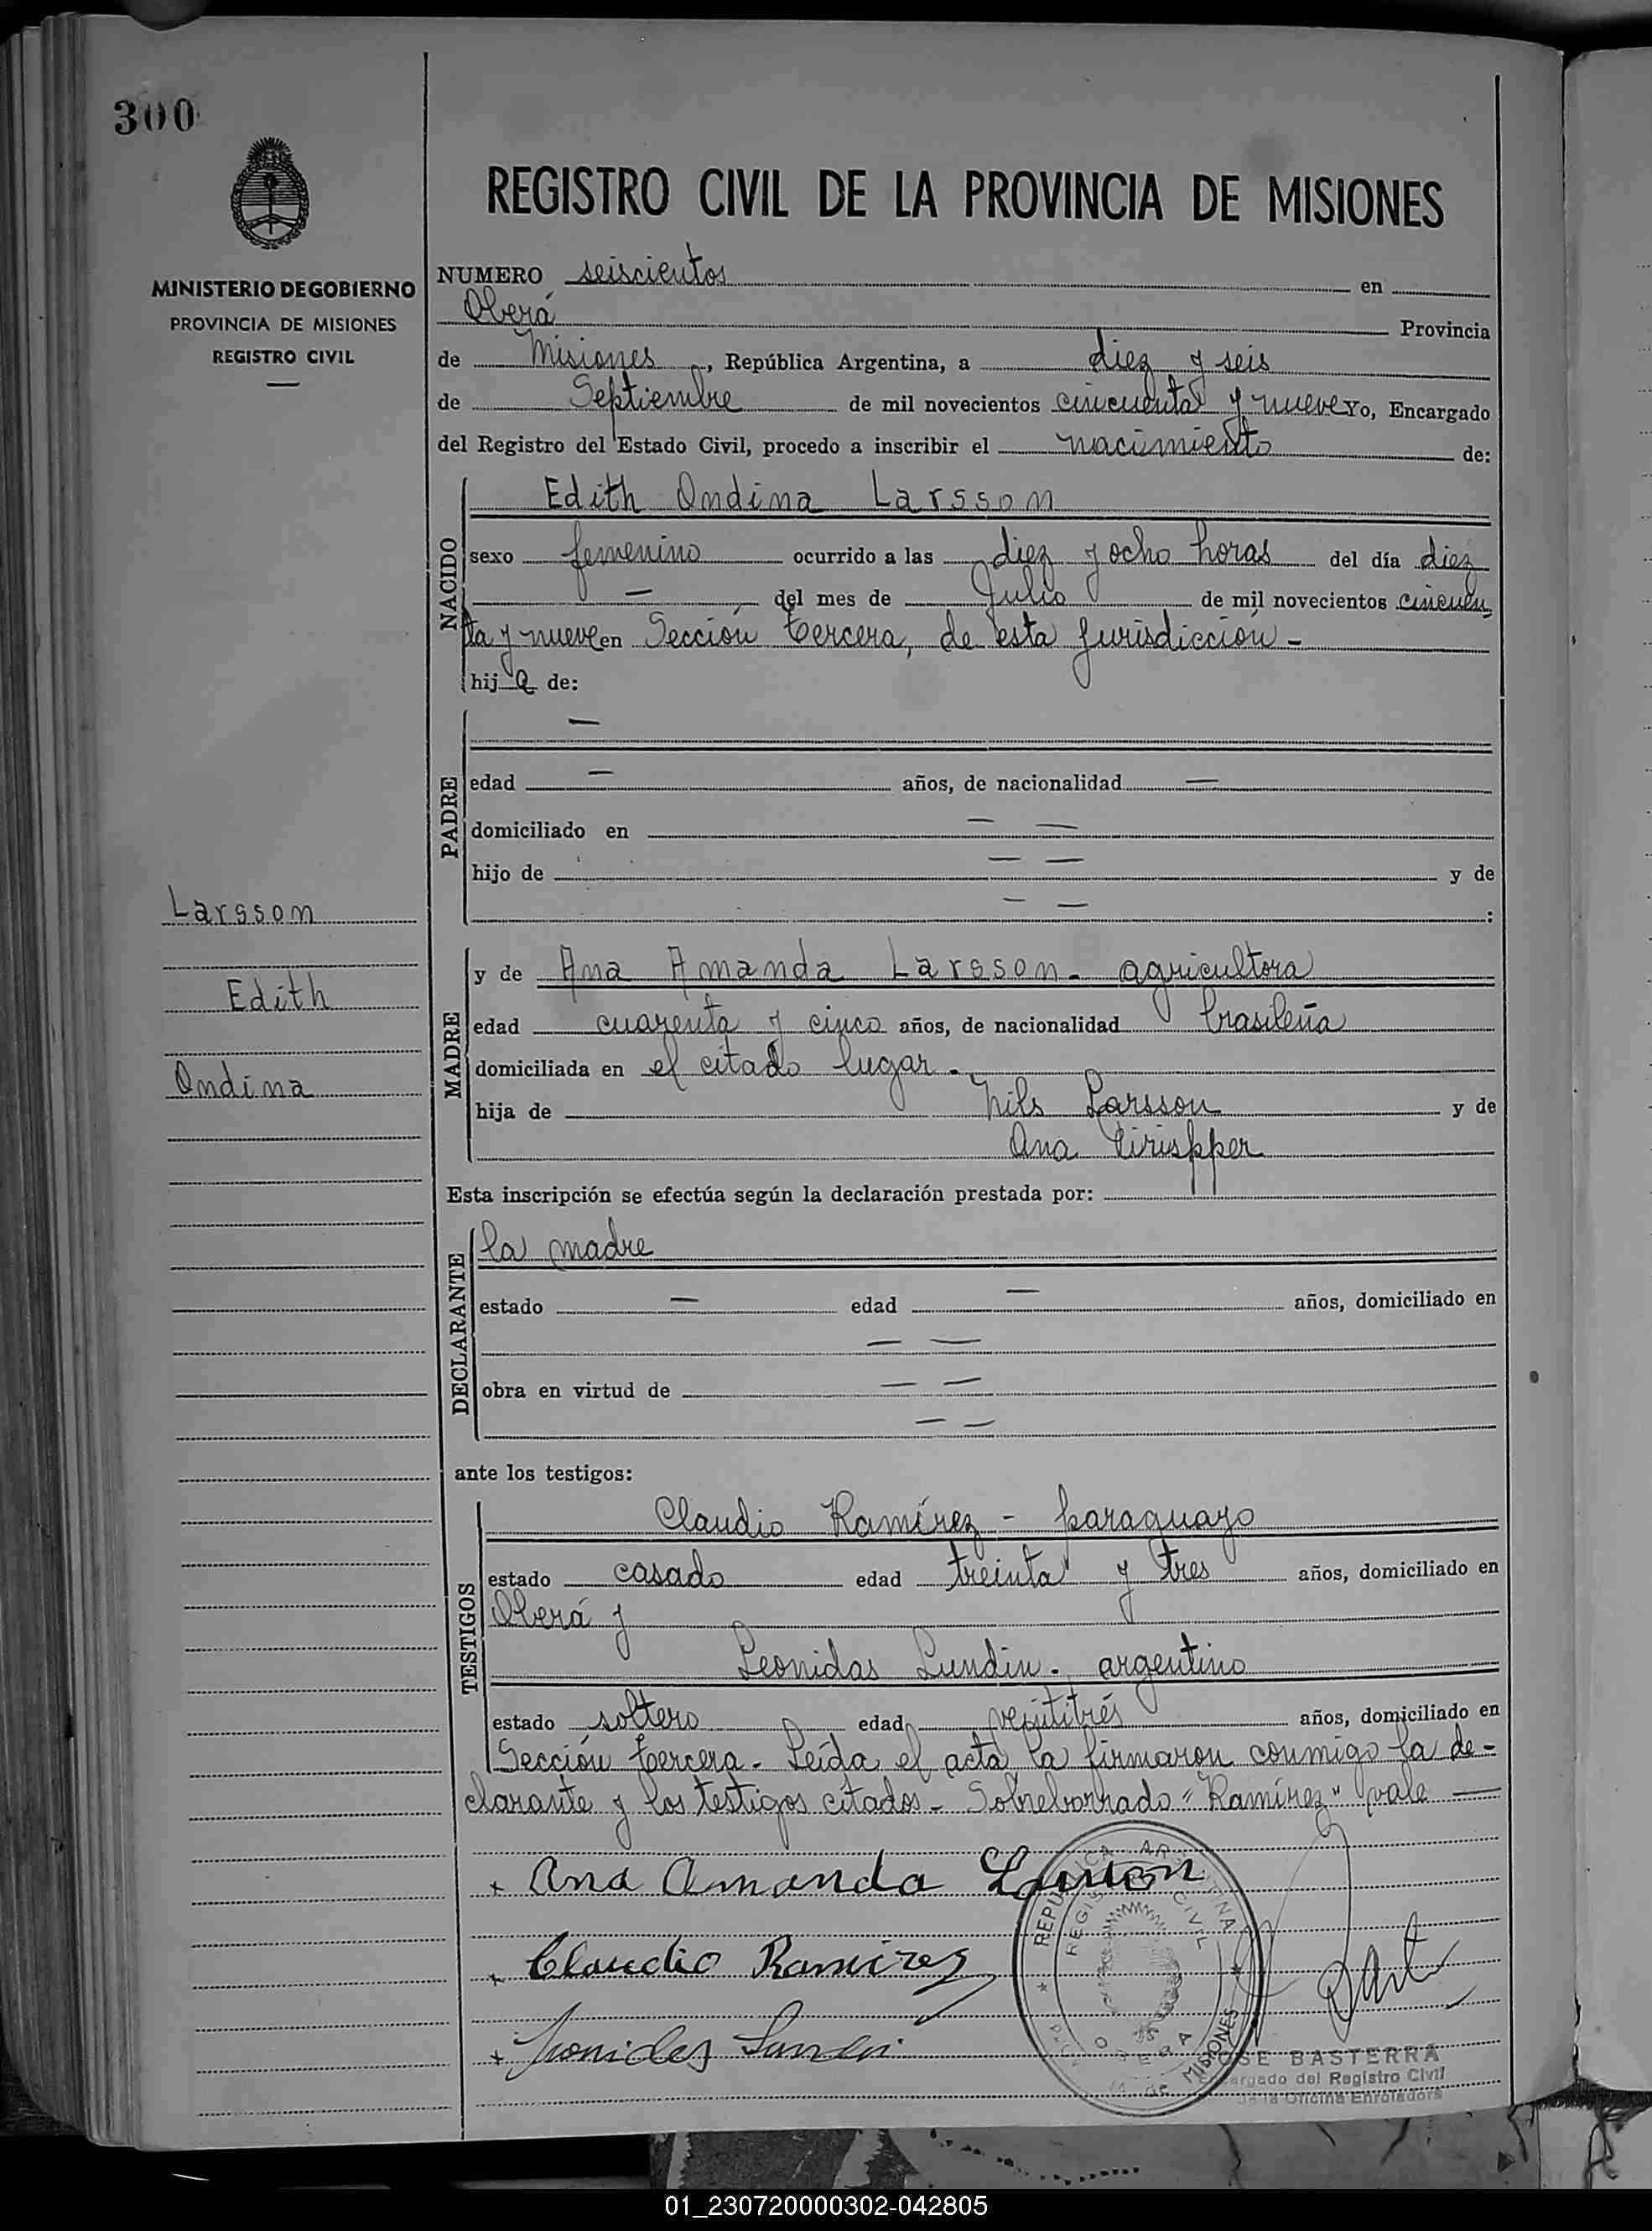 300
MINISTERIO DE GOBIERNO
PROVINCIA DE MISIONES
REGISTRO CIVIL
REGISTRO CIVIL DE LA PROVINCIA DE MISIONES
NUMERO seiscientos en
Oberá Provincia
de Misiones, República Argentina, a diez y seis
de Septiembre de mil novecientos cincuenta y nueve Yo, Encargado
del Registro del Estado Civil, procedo a inscribir el nacimiento de:
NACIDO
Edith Ondina Larsson
sexo femenino ocurrido a las diez y ocho horas del día diez
— del mes de Julio de mil novecientos cincuen
ta y nueve en Sección tercera, de esta jurisdicción -
hij a de:
PADRE
—
edad — años, de nacionalidad —
domiciliado en — —
hijo de — — y de
— — :
Larsson
Edith
Ondina
MADRE
y de Ana Amanda Larsson - agricultora
edad cuarenta y cinco años, de nacionalidad brasileña
domiciliada en el citado lugar -
hija de Nils Larsson y de
Ana
Esta inscripción se efectúa según la declaración prestada por:
DECLARANTE
la madre
estado — edad — años, domiciliado en
— —
obra en virtud de — —
— —
ante los testigos:
TESTIGOS
Claudio Ramírez - paraguayo
estado casado edad treinta y tres años, domiciliado en
Oberá y
Leonidas Lundin - argentino
estado soltero edad veintitrés años, domiciliado en
Sección tercera - Leída el acta la firmaron conmigo la de-
clarante y los testigos citados - Sobreborrado "Ramírez" vale —
+ Ana Amanda Larsson
+ Claudio Ramirez
+ Leonidas Lundin
REPUBLICA ARGENTINA
REGISTRO CIVIL
OBERA
MISIONES
JOSE BASTERRA
Encargado del Registro Civil
de la Oficina Enroladora
01_230720000302-042805